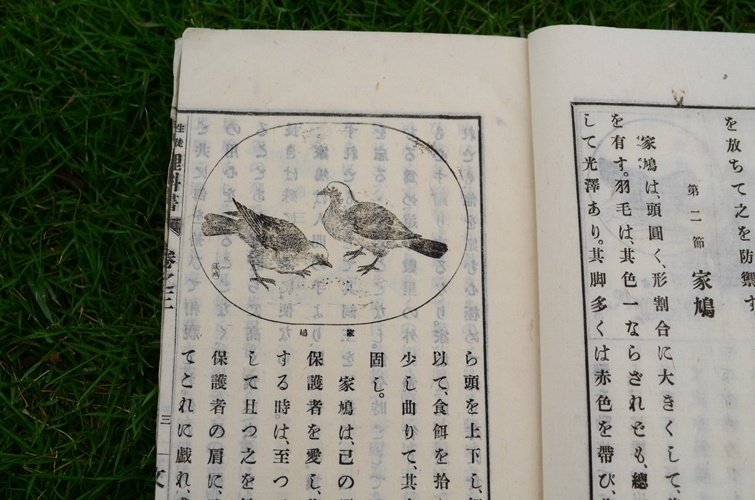 を放ちて之を防禦す
第二節 家鳩
家鳩は、頭圓く、形割合に大きくして、
を有す。羽毛は、其色一ならざれども、總
して光澤あり。其脚多くは赤色を帶び
ら頭を上下し、
以て、食餌を拾
少し曲りて、其
固し。
家鳩は、己の
保護者を愛し、
する時は、至つ
して且つ之を
保護者の肩に、
てこれに戯れ
家鳩
生徒
理科書
卷之三
三
文